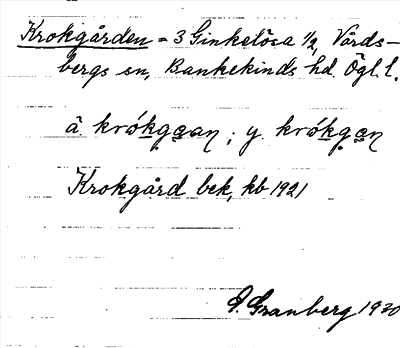 Krokgården = 3 Ginkelösa 1/2, Vårds-
bergs sn, Bankekinds hd Ögl. l.
å. krókgan; y. krókgen
Krokgård bek, kb 1921
Granberg 1930